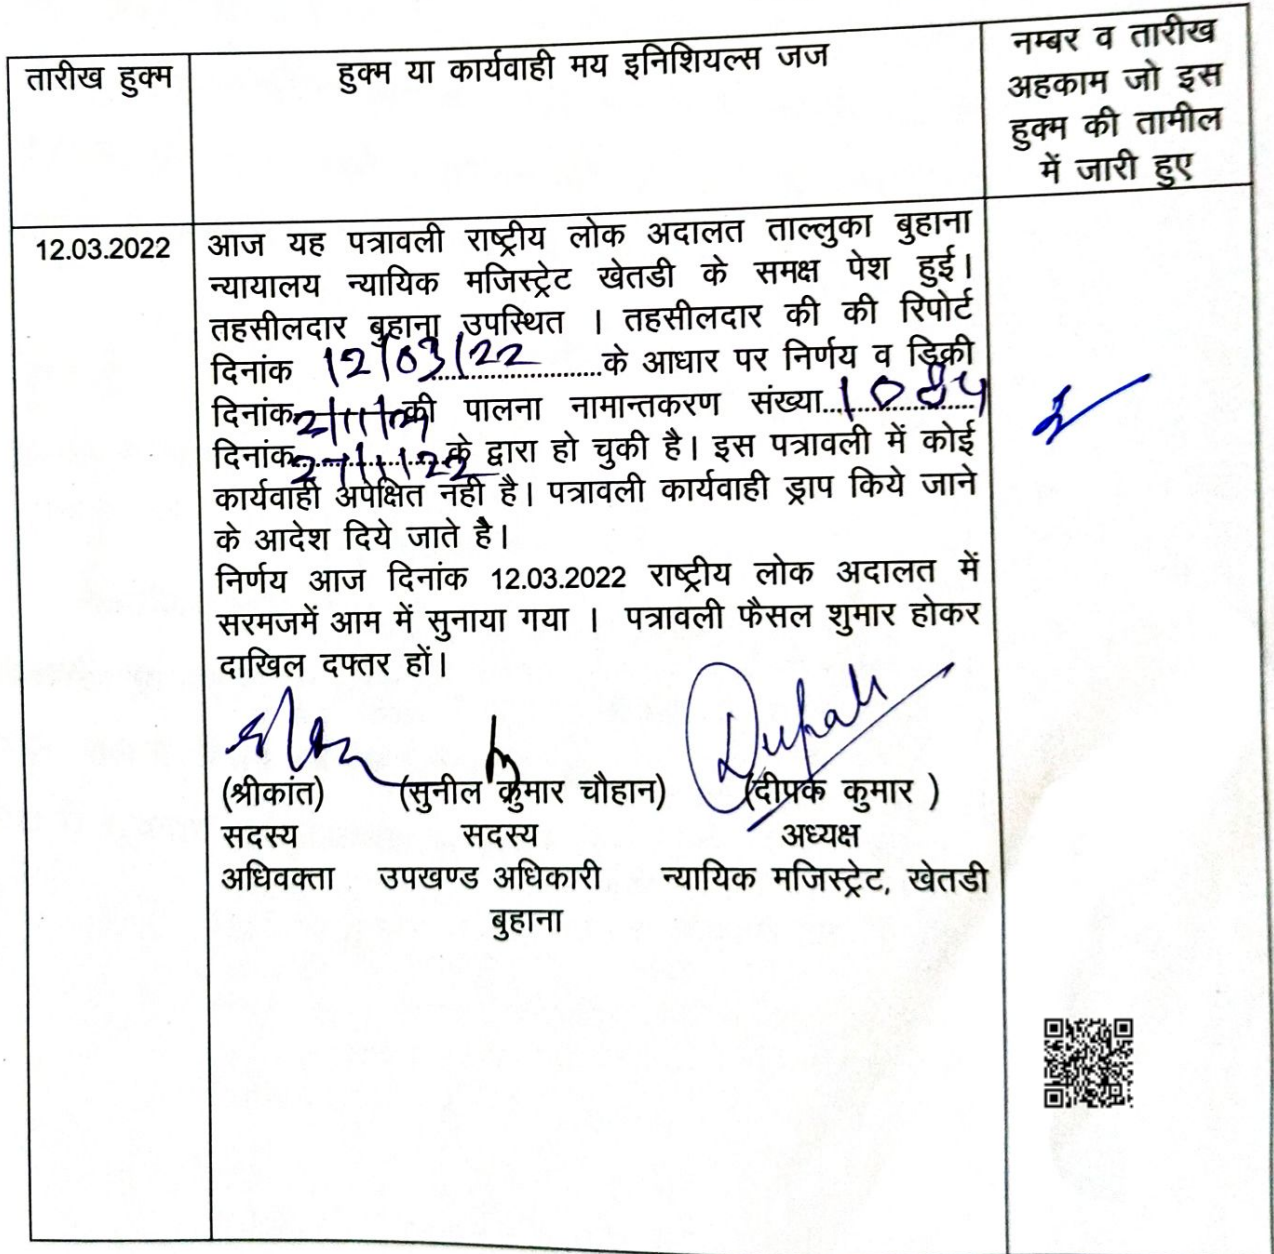 तारीख हुक्म
हुक्म या कार्यवाही मय इनिशियल्स जज
नम्बर व तारीख
अहकाम जो इस
हुक्म की तामील
में जारी हुए
12.03.2022
आज यह पत्रावली राष्ट्रीय लोक अदालत ताल्लुका बुहाना
न्यायालय न्यायिक मजिस्ट्रेट खेतडी के समक्ष पेश हुई।
तहसीलदार बुहाना उपस्थित । तहसीलदार की की रिपोर्ट
दिनांक 12/03/22 के आधार पर निर्णय व डिक्री
दिनांक की पालना नामान्तकरण संख्या
दिनांक के द्वारा हो चुकी है। इस पत्रावली में कोई
कार्यवाही अपेक्षित नही है। पत्रावली कार्यवाही ड्राप किये जाने
के आदेश दिये जाते है।
निर्णय आज दिनांक 12.03.2022 राष्ट्रीय लोक अदालत में
सरमजमें आम में सुनाया गया । पत्रावली फैसल शुमार होकर
दाखिल दफ्तर हों।
(श्रीकांत) (सुनील कुमार चौहान) (दीपक कुमार )
सदस्य सदस्य अध्यक्ष
अधिवक्ता उपखण्ड अधिकारी न्यायिक मजिस्ट्रेट, खेतडी
बुहाना